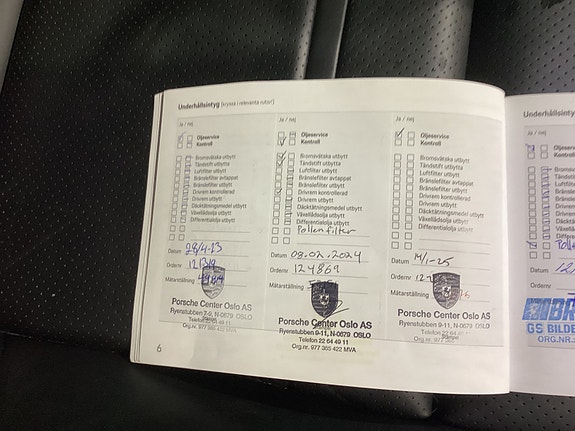 Underhållsintyg (kryssa i relevanta rutor)
Ja / nej
Oljeservice
Kontroll
Bromsvätska utbytt
Tändstift utbytta
Luftfilter utbytt
Bränslefilter avtappat
Bränslefilter utbytt
Drivrem kontrollerad
Drivrem utbytt
Däcktätningsmedel utbytt
Växellådsolja utbytt
Differentialolja utbytt
Datum 28/4-23
Ordernr
Mätarställning
Porsche Center Oslo AS
Ryenstubben 7-9, N-0679 OSLO
Telefon 22 64 49 11
Org.nr. 977 365 422 MVA
6
Ja / nej
Oljeservice
Kontroll
Bromsvätska utbytt
Tändstift utbytta
Luftfilter utbytt
Bränslefilter avtappat
Bränslefilter utbytt
Drivrem kontrollerad
Drivrem utbytt
Däcktätningsmedel utbytt
Växellådsolja utbytt
Differentialolja utbytt
Pollenfilter
Datum 09.02.2024
Ordernr 124869
Mätarställning
Porsche Center Oslo AS
Ryenstubben 9-11, N-0679 OSLO
Telefon 22 64 49 11
Org.nr. 977 365 422 MVA
Ja / nej
Oljeservice
Kontroll
Bromsvätska utbytt
Tändstift utbytta
Luftfilter utbytt
Bränslefilter avtappat
Bränslefilter utbytt
Drivrem kontrollerad
Drivrem utbytt
Däcktätningsmedel utbytt
Växellådsolja utbytt
Differentialolja utbytt
Datum
Ordernr
Mätarställning
Porsche Center Oslo AS
Ryenstubben 9-11, N-0679 OSLO
Telefon 22 64 49 11
Org.nr. 977 365 422 MVA
Ja / nej
Datum
Ordernr
GS BILDE
ORG.NR.